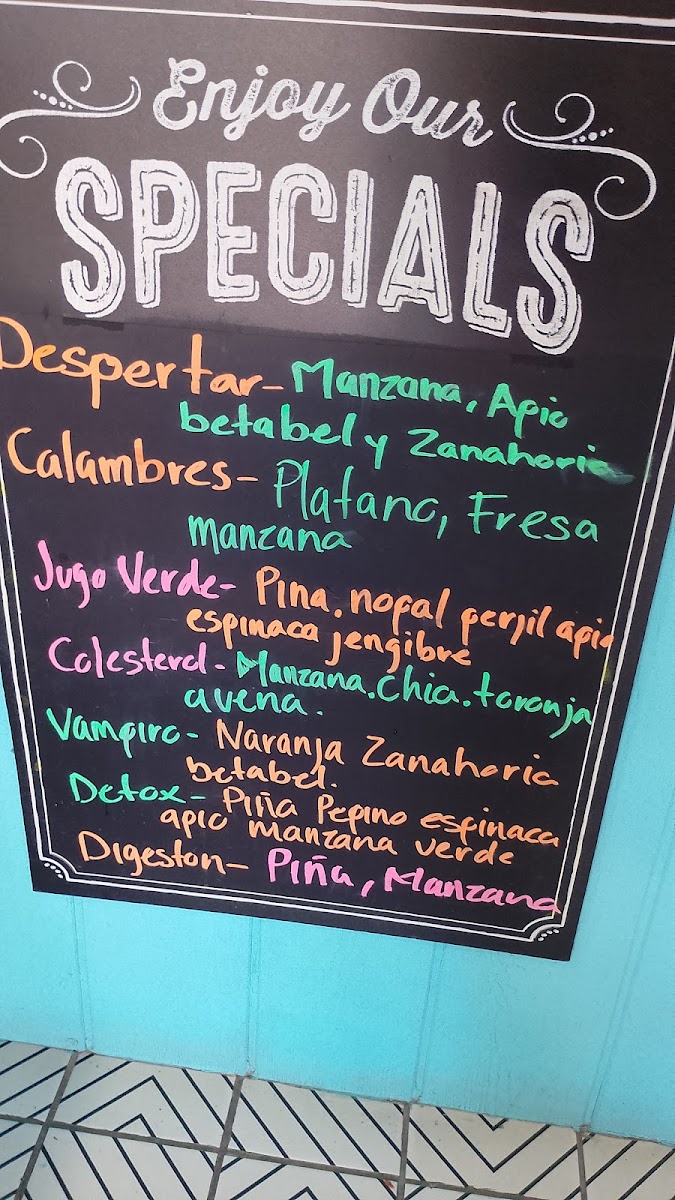 Enjoy Our
SPECIALS
Despertar- Manzana, Apio
betabel y Zanahoria
Calambres- Platano, Fresa
manzana
Jugo Verde- Pina. nopal perjil apio
espinaca jengibre
Colesterol- Manzana. Chia. toronja
avena.
Vampiro- Naranja Zanahoria
betabel.
Detox- Piña Pepino espinaca
apio manzana verde
Digeston- Piña, Manzana